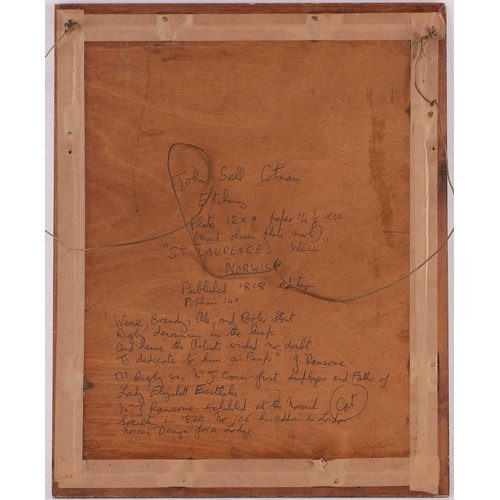 John Sell Cotman
Etching
Plate 12 x 9 paper 14 ½ x 10
(mount obscures plate mark)
"ST LAURENCE'S WELL"
NORWICH
Published 1818 edition
Popham 140
"Wine, Brandy, Ale, and Porter Stout
Rigby denounces in the lump
And hence the Artist wished no doubt
To dedicate to him a Pump" J Ransome
Dr Rigby was Mr J Crome first employer and Father of
Lady Elizabeth Eastlake
Mr J Ransome exhibited at the Norwich
Society in 1828 No 106 his address is London
No 106 Design for a Lodge
Cat